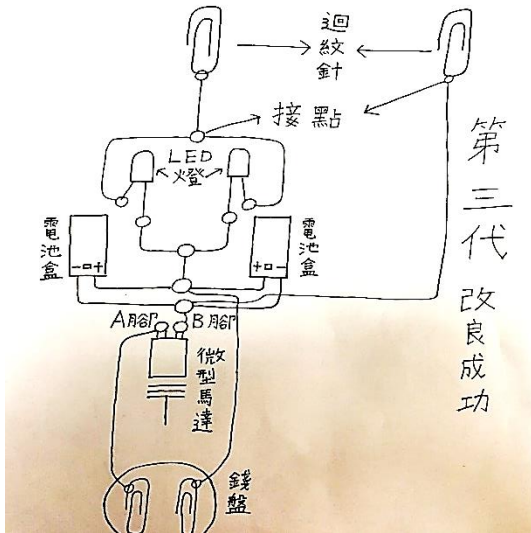 迴紋針
接點
LED
燈
電池盒
－ +
電池盒
+ －
A腳
B腳
微型馬達
錢盤
第三代改良成功